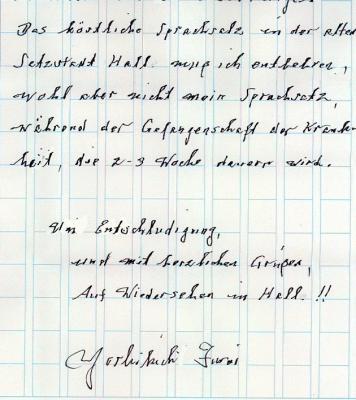 Das köstliche Sprachsalz in der alten
Salzstadt Hall muß ich entbehren,
wohl aber nicht mein Sprachsalz,
während der Gefangenschaft der Krank-
heit, die 2-3 Woche dauern wird.
Um Entschludigung,
und mit herzlichen Grüßen,
Auf Wiedersehen in Hall. !!
Yoshikichi Furui